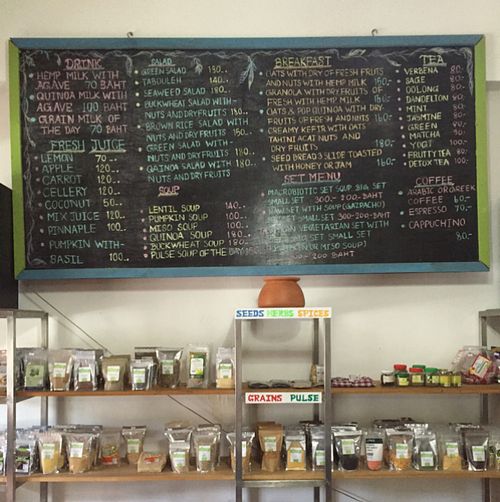 DRINK
HEMP MILK WITH
AGAVE 70 BAHT
QUINOA MILK WITH
AGAVE 100 BAHT
GRAIN MILK OF
THE DAY 70 BAHT
FRESH JUICE
LEMON 70
APPLE 120
CARROT 120
CELLERY 120
COCONUT 50
MIX JUICE 120
PINNAPLE 100
PUMPKIN WITH-
BASIL 100
SALAD
GREEN SALAD 130
TABOULEH 140
SEAWEED SALAD 180
BUCKWHEAT SALAD WITH-
NUTS AND DRY FRUITS 180
BROWN RICE SALAD WITH
NUTS AND DRY FRUITS 150
GREEN SALAD WITH
NUTS AND DRY FRUITS
SALAD WITH 180
NUTS AND DRY FRUITS
SOUP
LENTIL SOUP 140
PUMPKIN SOUP 100
MISO SOUP 100
QUINOA SOUP 180
BUCKWHEAT SOUP 180
PULSE SOUP OF THE DAY
BREAKFAST
OATS WITH DRY OF FRESH FRUITS
AND NUTS WITH HEMP MILK 160
GRANOLA WITH DRY FRUITS OF
FRESH WITH HEMP MILK 160
OATS & POP QUINOA WITH DRY
FRUITS OF FRESH AND NUTS 160
CREAMY KEFIR WITH OATS
TAHINI ACAI NUTS AND
DRY FRUITS 180
SEED BREAD 3 SLIDE TOASTED
WITH HONEY OR JAM 160
SET MENU
MACROBIOTIC SET SOUP BIG SET
SMALL SET 300- 200 BAHT
SET WITH SOUP (GAZPACHO)
SET SMALL SET 300-200 BAHT
VEGETARIAN SET WITH
SET SMALL SET
OR MISO SOUP]
200 BAHT
TEA
VERBENA 80
SAGE 80
OOLONG 80
DANDELION 80
MINT 80
JASMINE 80
GREEN 80
MATCHA 90
YOGI 100
FRUITY TEA 80
DETOX TEA 100
COFFEE
ARABIC OR GREEK
COFFEE 60
ESPRESSO 70
CAPPUCHINO
80
SEEDS HERBS SPICES
GRAINS PULSE